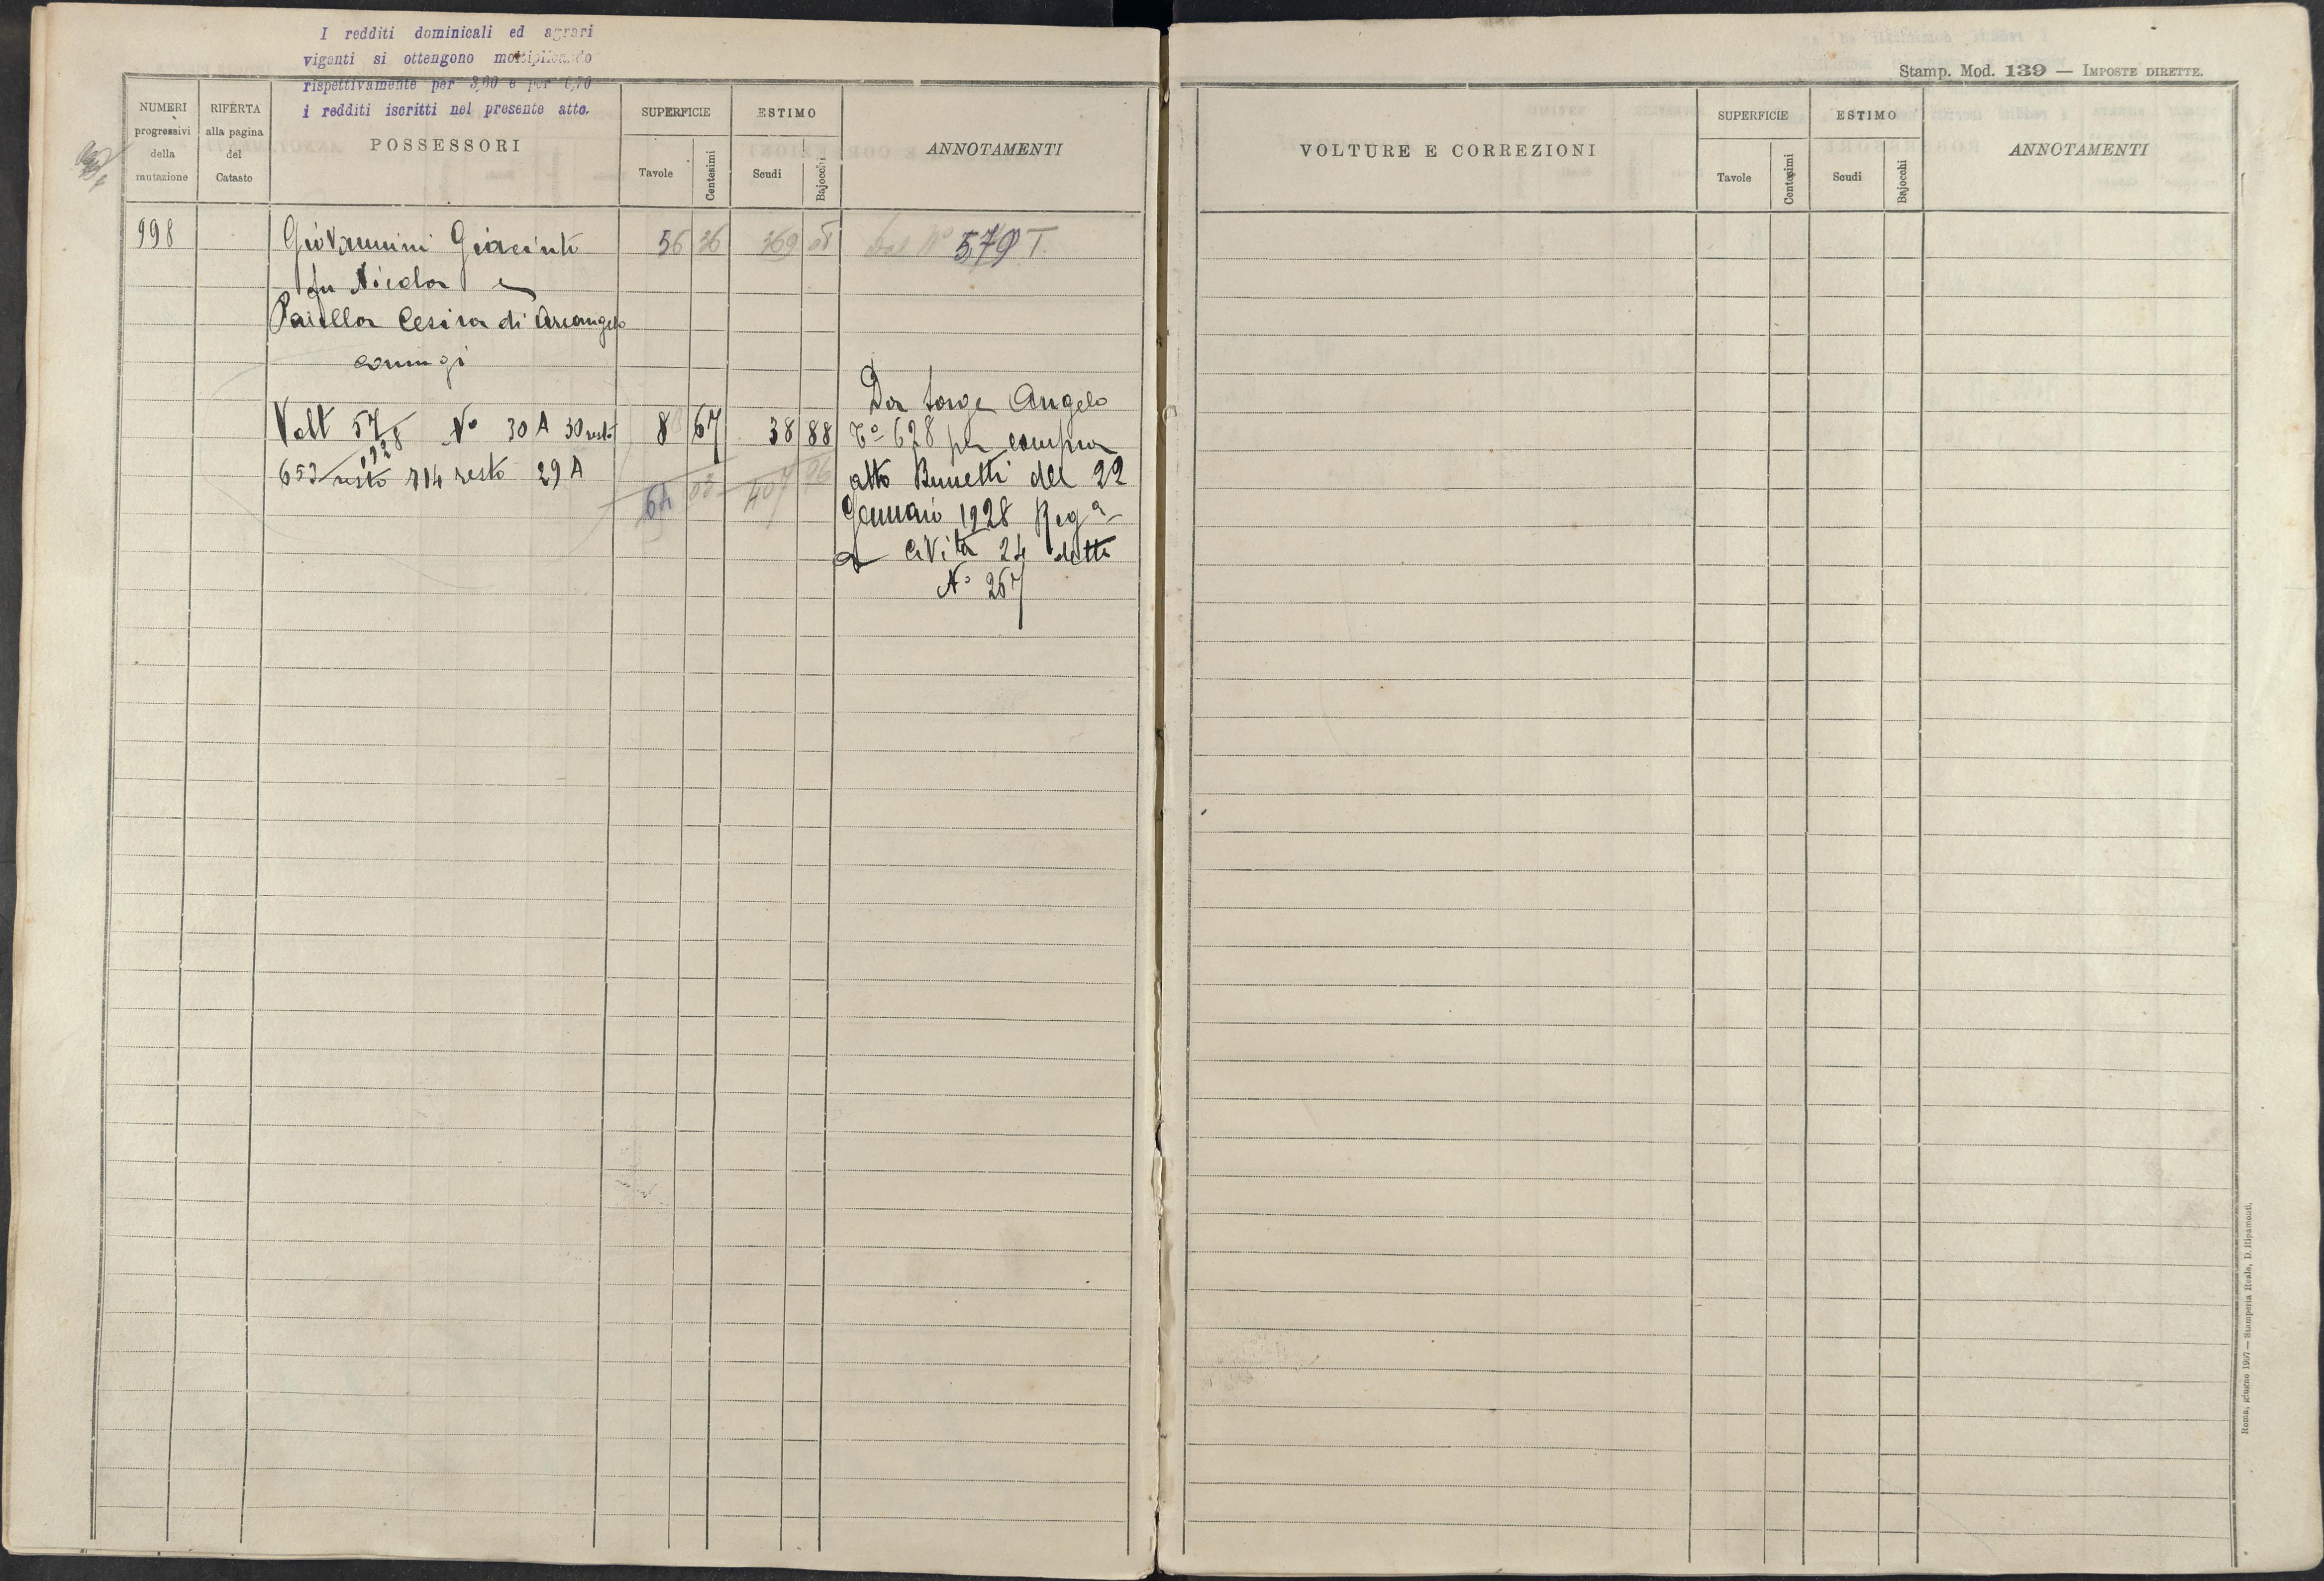 I redditi dominicali ed agrari
vigenti si ottengono moltiplicando
rispettivamente per 3,60 e per 6,70
i redditi iscritti nel presente atto.
NUMERI progressivi della mutazione
RIFERTA alla pagina del Catasto
POSSESSORI
SUPERFICIE
Tavole
Centesimi
ESTIMO
Scudi
Bajocchi
ANNOTAMENTI
998 Giovannini Giacinto 56 36 369 08 Dal N° 579 T.
fu Nicola e
Paiella Cesira di Arcangelo
coniugi
Da Sorge Angelo
Volt 57/1928 N° 30 A 30 resto 8 67 38 88 To 628 per compra
653 resto 714 resto 29 A atto Brunetti del 22
64 03 407 96
Gennaio 1928 Rega
a Civita 24 detto
N° 267
Stamp. Mod. 139 — IMPOSTE DIRETTE.
VOLTURE E CORREZIONI
SUPERFICIE
Tavole
Centesimi
ESTIMO
Scudi
Bajocchi
ANNOTAMENTI
Roma, giugno 1907 — Stamperia Reale, D. Ripamonti.